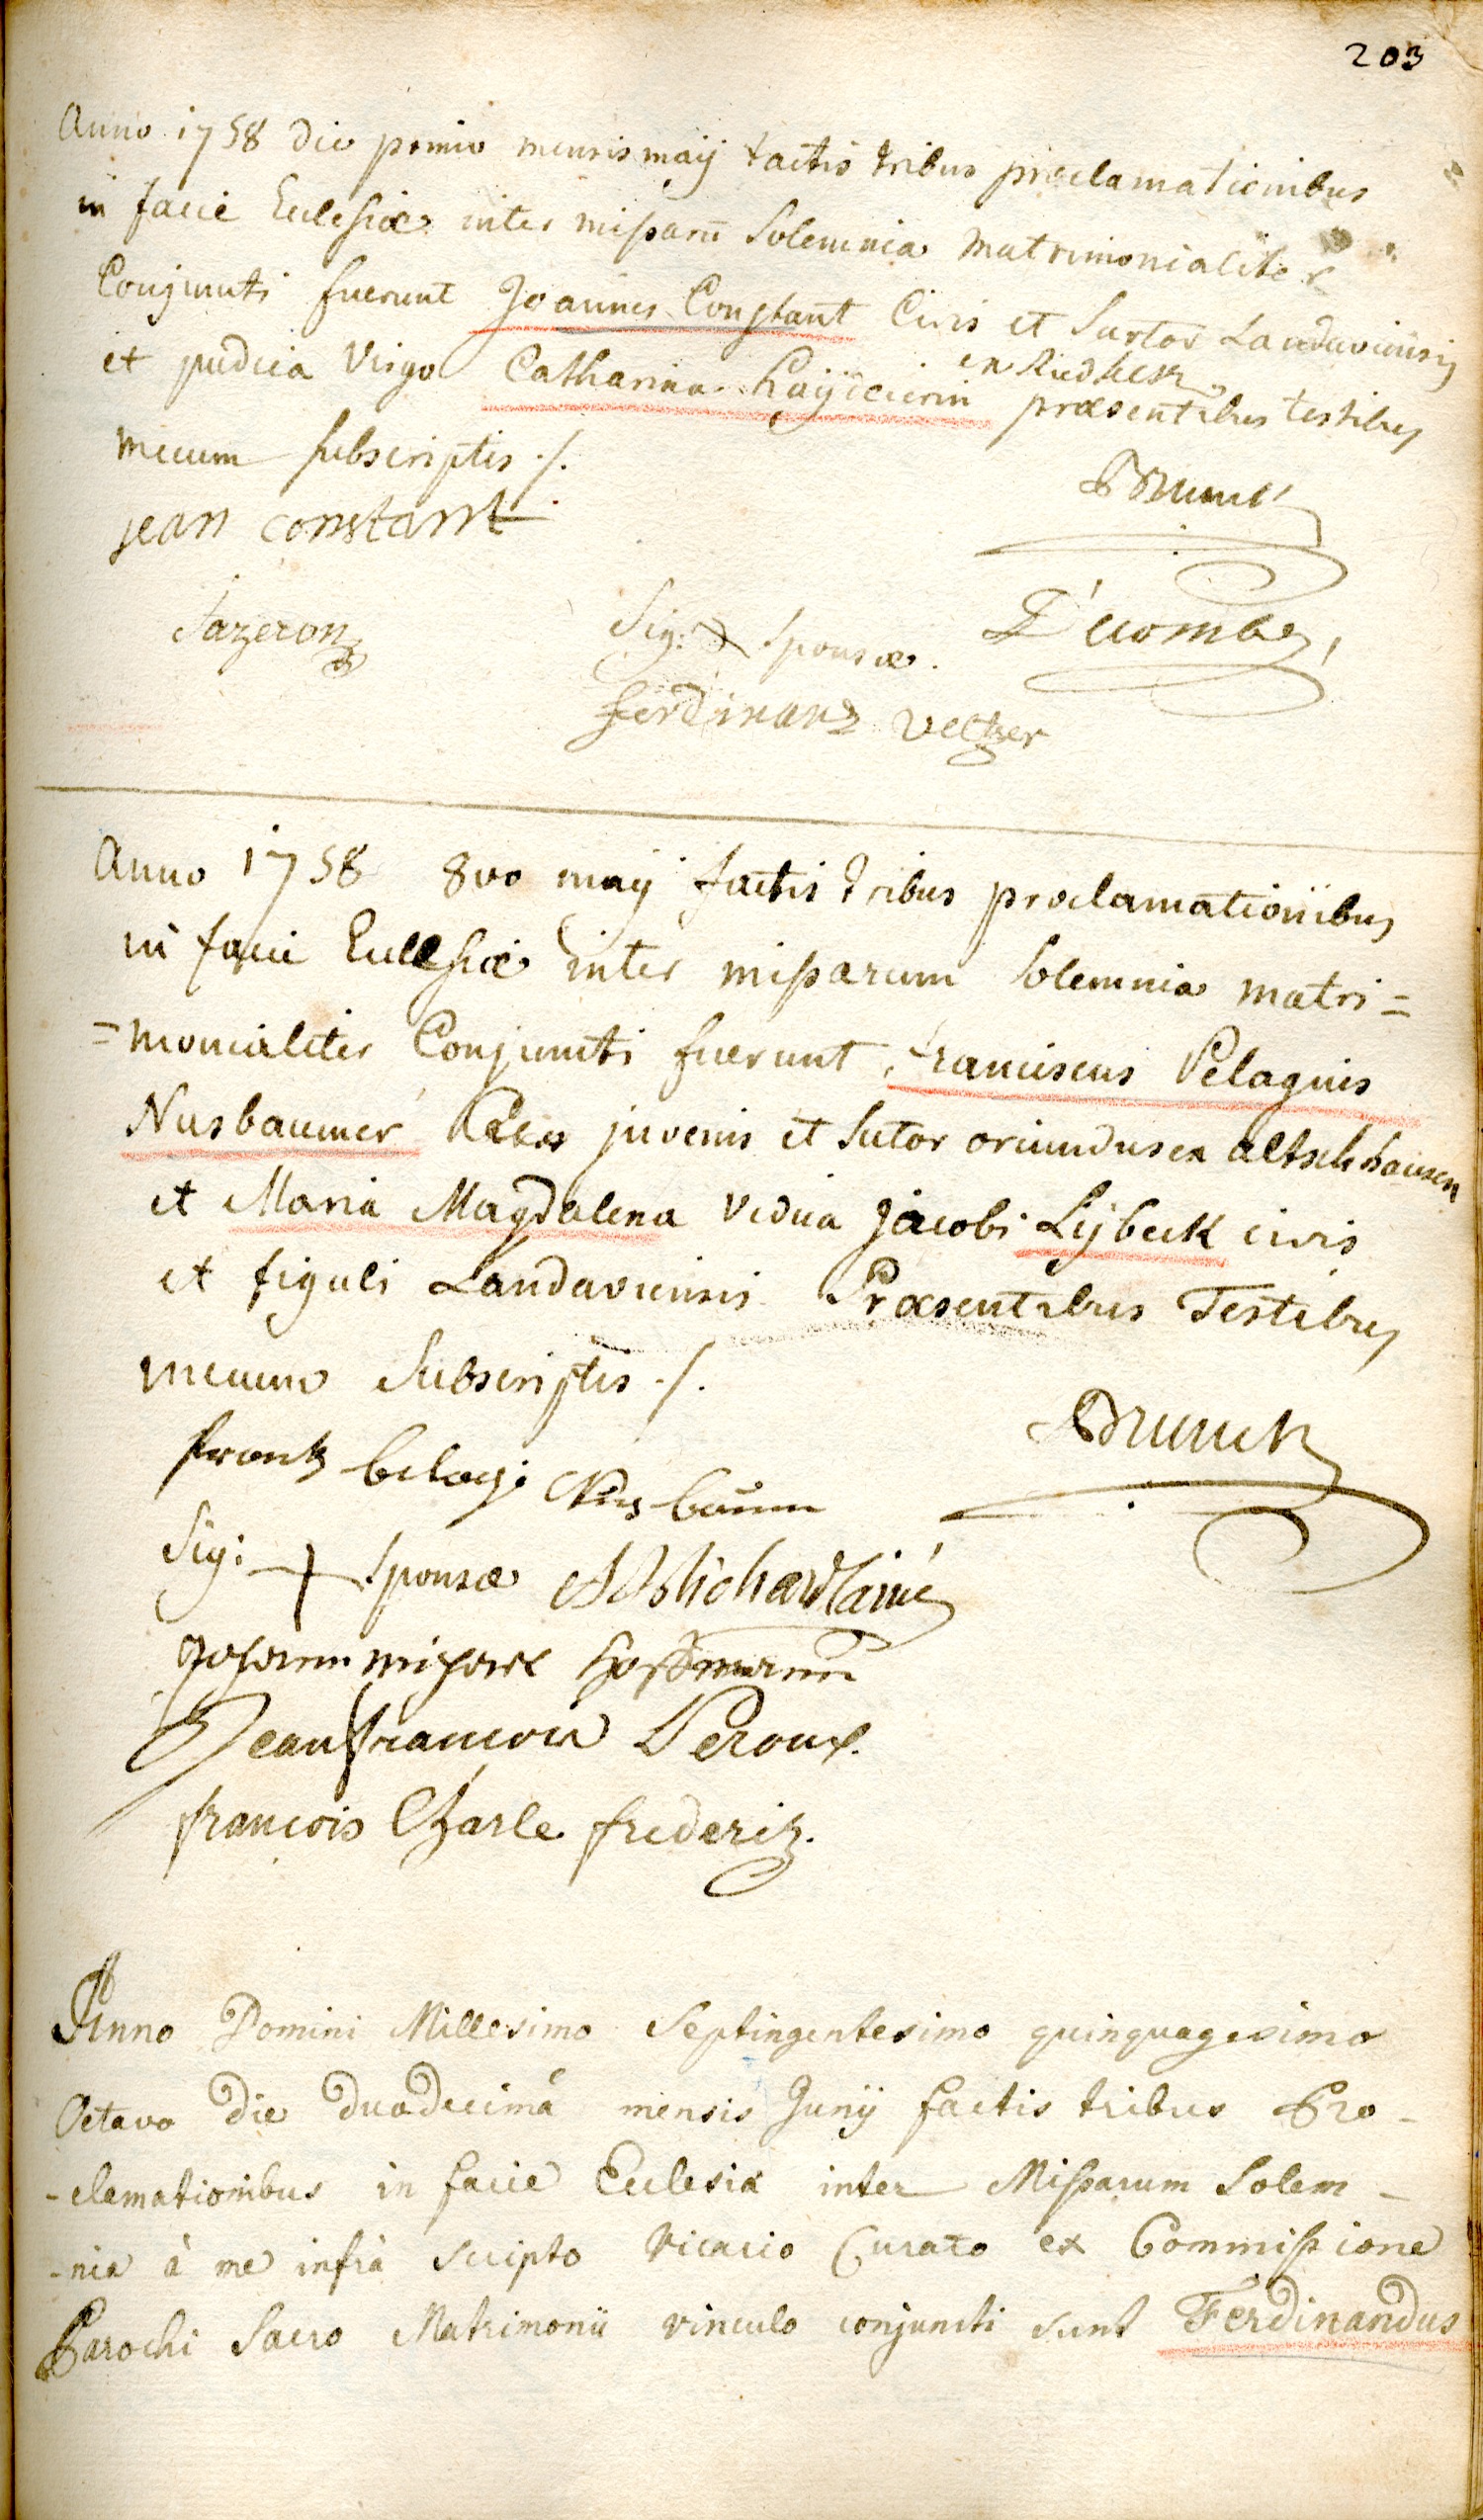 203
Anno 1758 die primo mensis maij factis tribus proclamationibus
in facie Ecclesiæ inter missarū Solemnia matrimonialiter
Conjuncti fuerunt Joannes Constant Civis et Sartor Landaviensis
et pudica Virgo Catharina præsentibus testibus
ex
mecum subscriptis ./.
jean constant
Sazeron
Sig: sponsæ.
ferdinand velzer
Anno 1758 8vo maij factis tribus proclamationibus
in facie Ecclesiæ inter missarum Solemnia matri=
=monialiter Conjuncti fuerunt, franciscus Pelagius
Nusbaumer juvenis et Sutor oriundus ex altschhausen
et Maria Magdalena vidua Jacobi Lijbeck civis
et figuli Landaviensis Præsentibus Testibus
mecum Subscriptis ./.
Brunck
frantz belagi Nusbaum
Sig: + sponsæ
Johann michael Hoffmann
Jean francois Peroux.
francois Charle frederich.
Anno Domini Millesimo Septingentesimo quinquagesimo
Octavo die duodecimâ mensis Junij factis tribus Pro-
-clamationibus in facie Ecclesiæ inter Missarum Solem-
-nia à me infrà scripto Vicario Curato ex Commissione
Parochi Sacro Matrimonii vinculo conjuncti sunt Ferdinandus